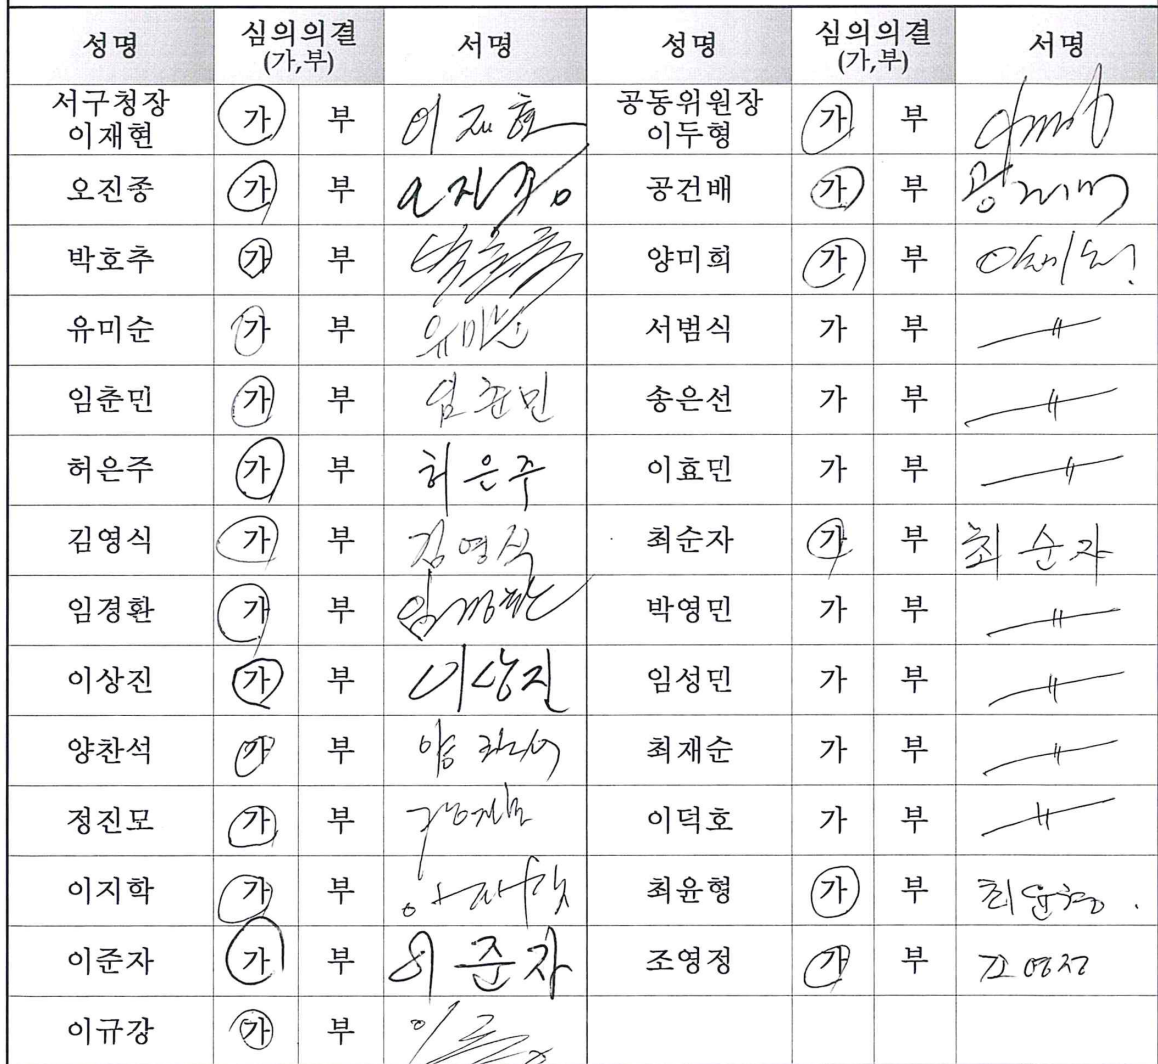 성명 심의의결 (가,부) 서명 성명 심의의결 (가,부) 서명
서구청장 이재현 가 부 이재현 공동위원장 이두형 가 부
오진종 가 부 오진종 공건배 가 부
박호추 가 부 박호추 양미희 가 부
유미순 가 부 유미순 서범식 가 부 〃
임춘민 가 부 임춘민 송은선 가 부 〃
허은주 가 부 허은주 이효민 가 부 〃
김영식 가 부 김영식 최순자 가 부 최순자
임경환 가 부 임경환 박영민 가 부 〃
이상진 가 부 이상진 임성민 가 부 〃
양찬석 가 부 최재순 가 부 〃
정진모 가 부 이덕호 가 부 〃
이지학 가 부 최윤형 가 부 최윤형
이준자 가 부 이준자 조영정 가 부 조영정
이규강 가 부